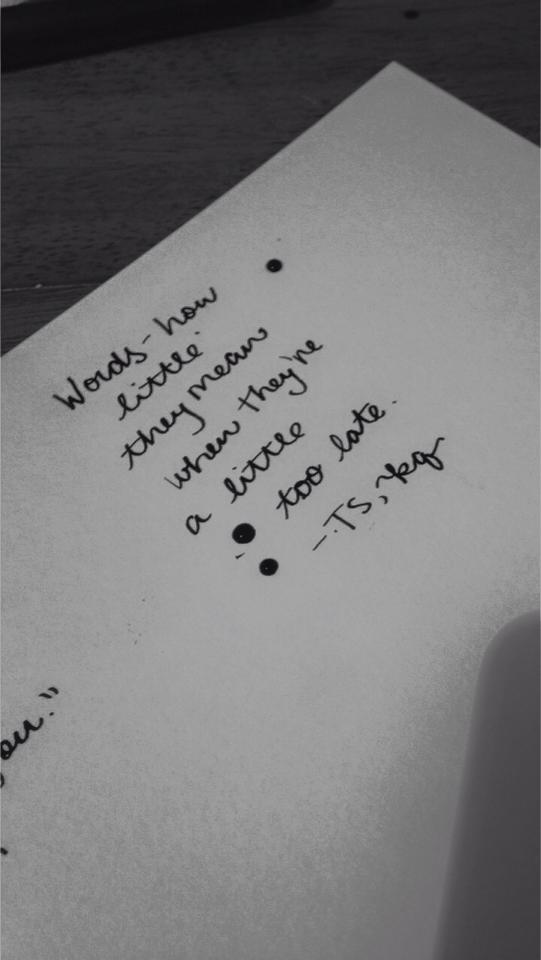 Words - how
little
they mean
when they're
a little
too late.
- TS,
ou."